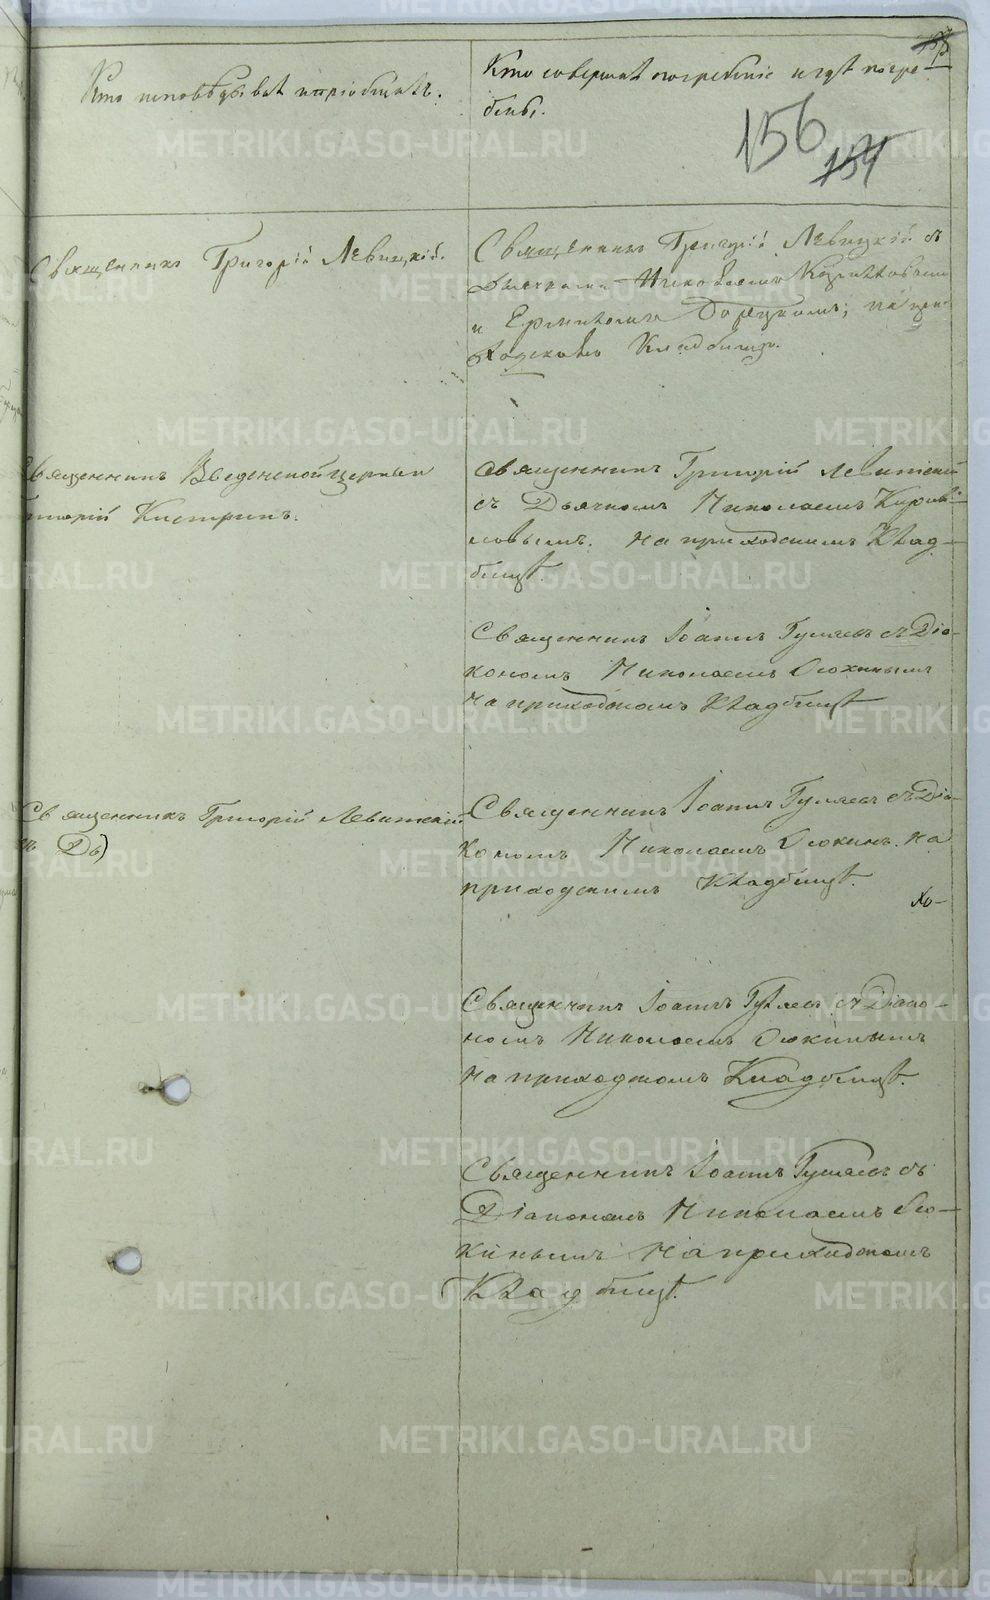 Кто исповѣдывалъ и пріобщалъ.
Кто совершалъ погребеніе и гдѣ погре-
бены.
156
154
Священникъ Григорій Левицкій.
Священникъ Григорій Левицкій съ
Дьячками Николаемъ
и Ермиломъ на при-
ходскомъ Кладбищѣ.
Священникъ Введенской церкви
Григорій Кистринъ.
Священникъ Григорій Левитскій
съ Дьячкомъ Николаемъ Кири-
ловымъ. На приходскимъ Клад-
бищѣ.
Священникъ Іоаннъ Гуляевъ съ Діа-
кономъ Николаемъ
На приходскомъ Кладбищѣ
Священникъ Григорій Левитскій
съ Дь)
Священникъ Іоаннъ Гуляевъ съ Діа-
кономъ Николаемъ На
приходскимъ Кладбищѣ.
хо-
Священникъ Іоаннъ Гуляевъ съ Діако-
номъ Николаемъ
На приходскомъ Кладбищѣ.
Священникъ Іоаннъ Гуляевъ съ
Діакономъ Николаемъ
На приходскомъ
Кладбищѣ.
METRIKI.GASO-URAL.RU